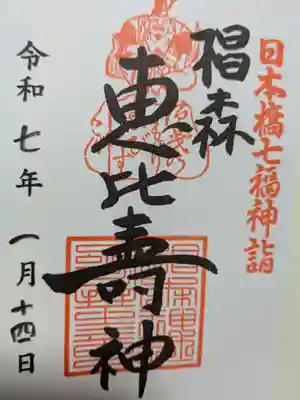 日本橋七福神詣
椙森
恵比壽神
令和七年 一月十四日